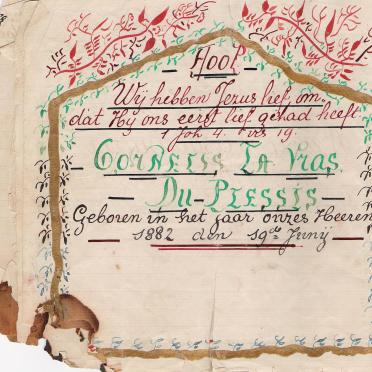 — Hoof —
Wij hebben Jezus lief, om
dat Hy ons eerst lief gehad heeft.
1 Joh 4. vers 19.
— Cornelis La Gras
— Du Plessis —
Geboren in het jaar onzes Heeren
1882 den 19de Junij